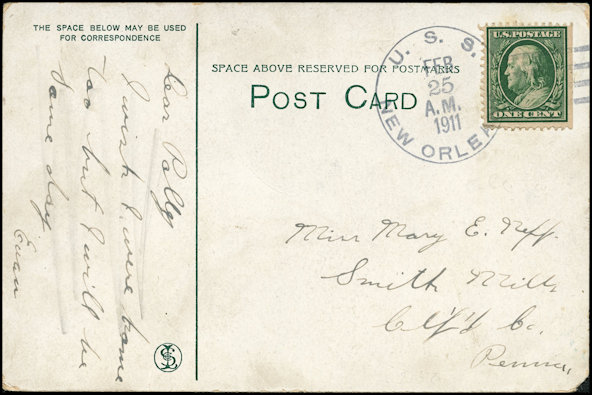 THE SPACE BELOW MAY BE USED
FOR CORRESPONDENCE
Dear Polly
I wish I were home
too but I will be
some day
Ewan
SPACE ABOVE RESERVED FOR POSTMARKS
POST CARD
U. S. S.
FEB
25
A.M.
1911
NEW ORLEA
U.S. POSTAGE
ONE CENT
Miss Mary E. Neff.
Smith Mills
Clf'd Co.
Penna.